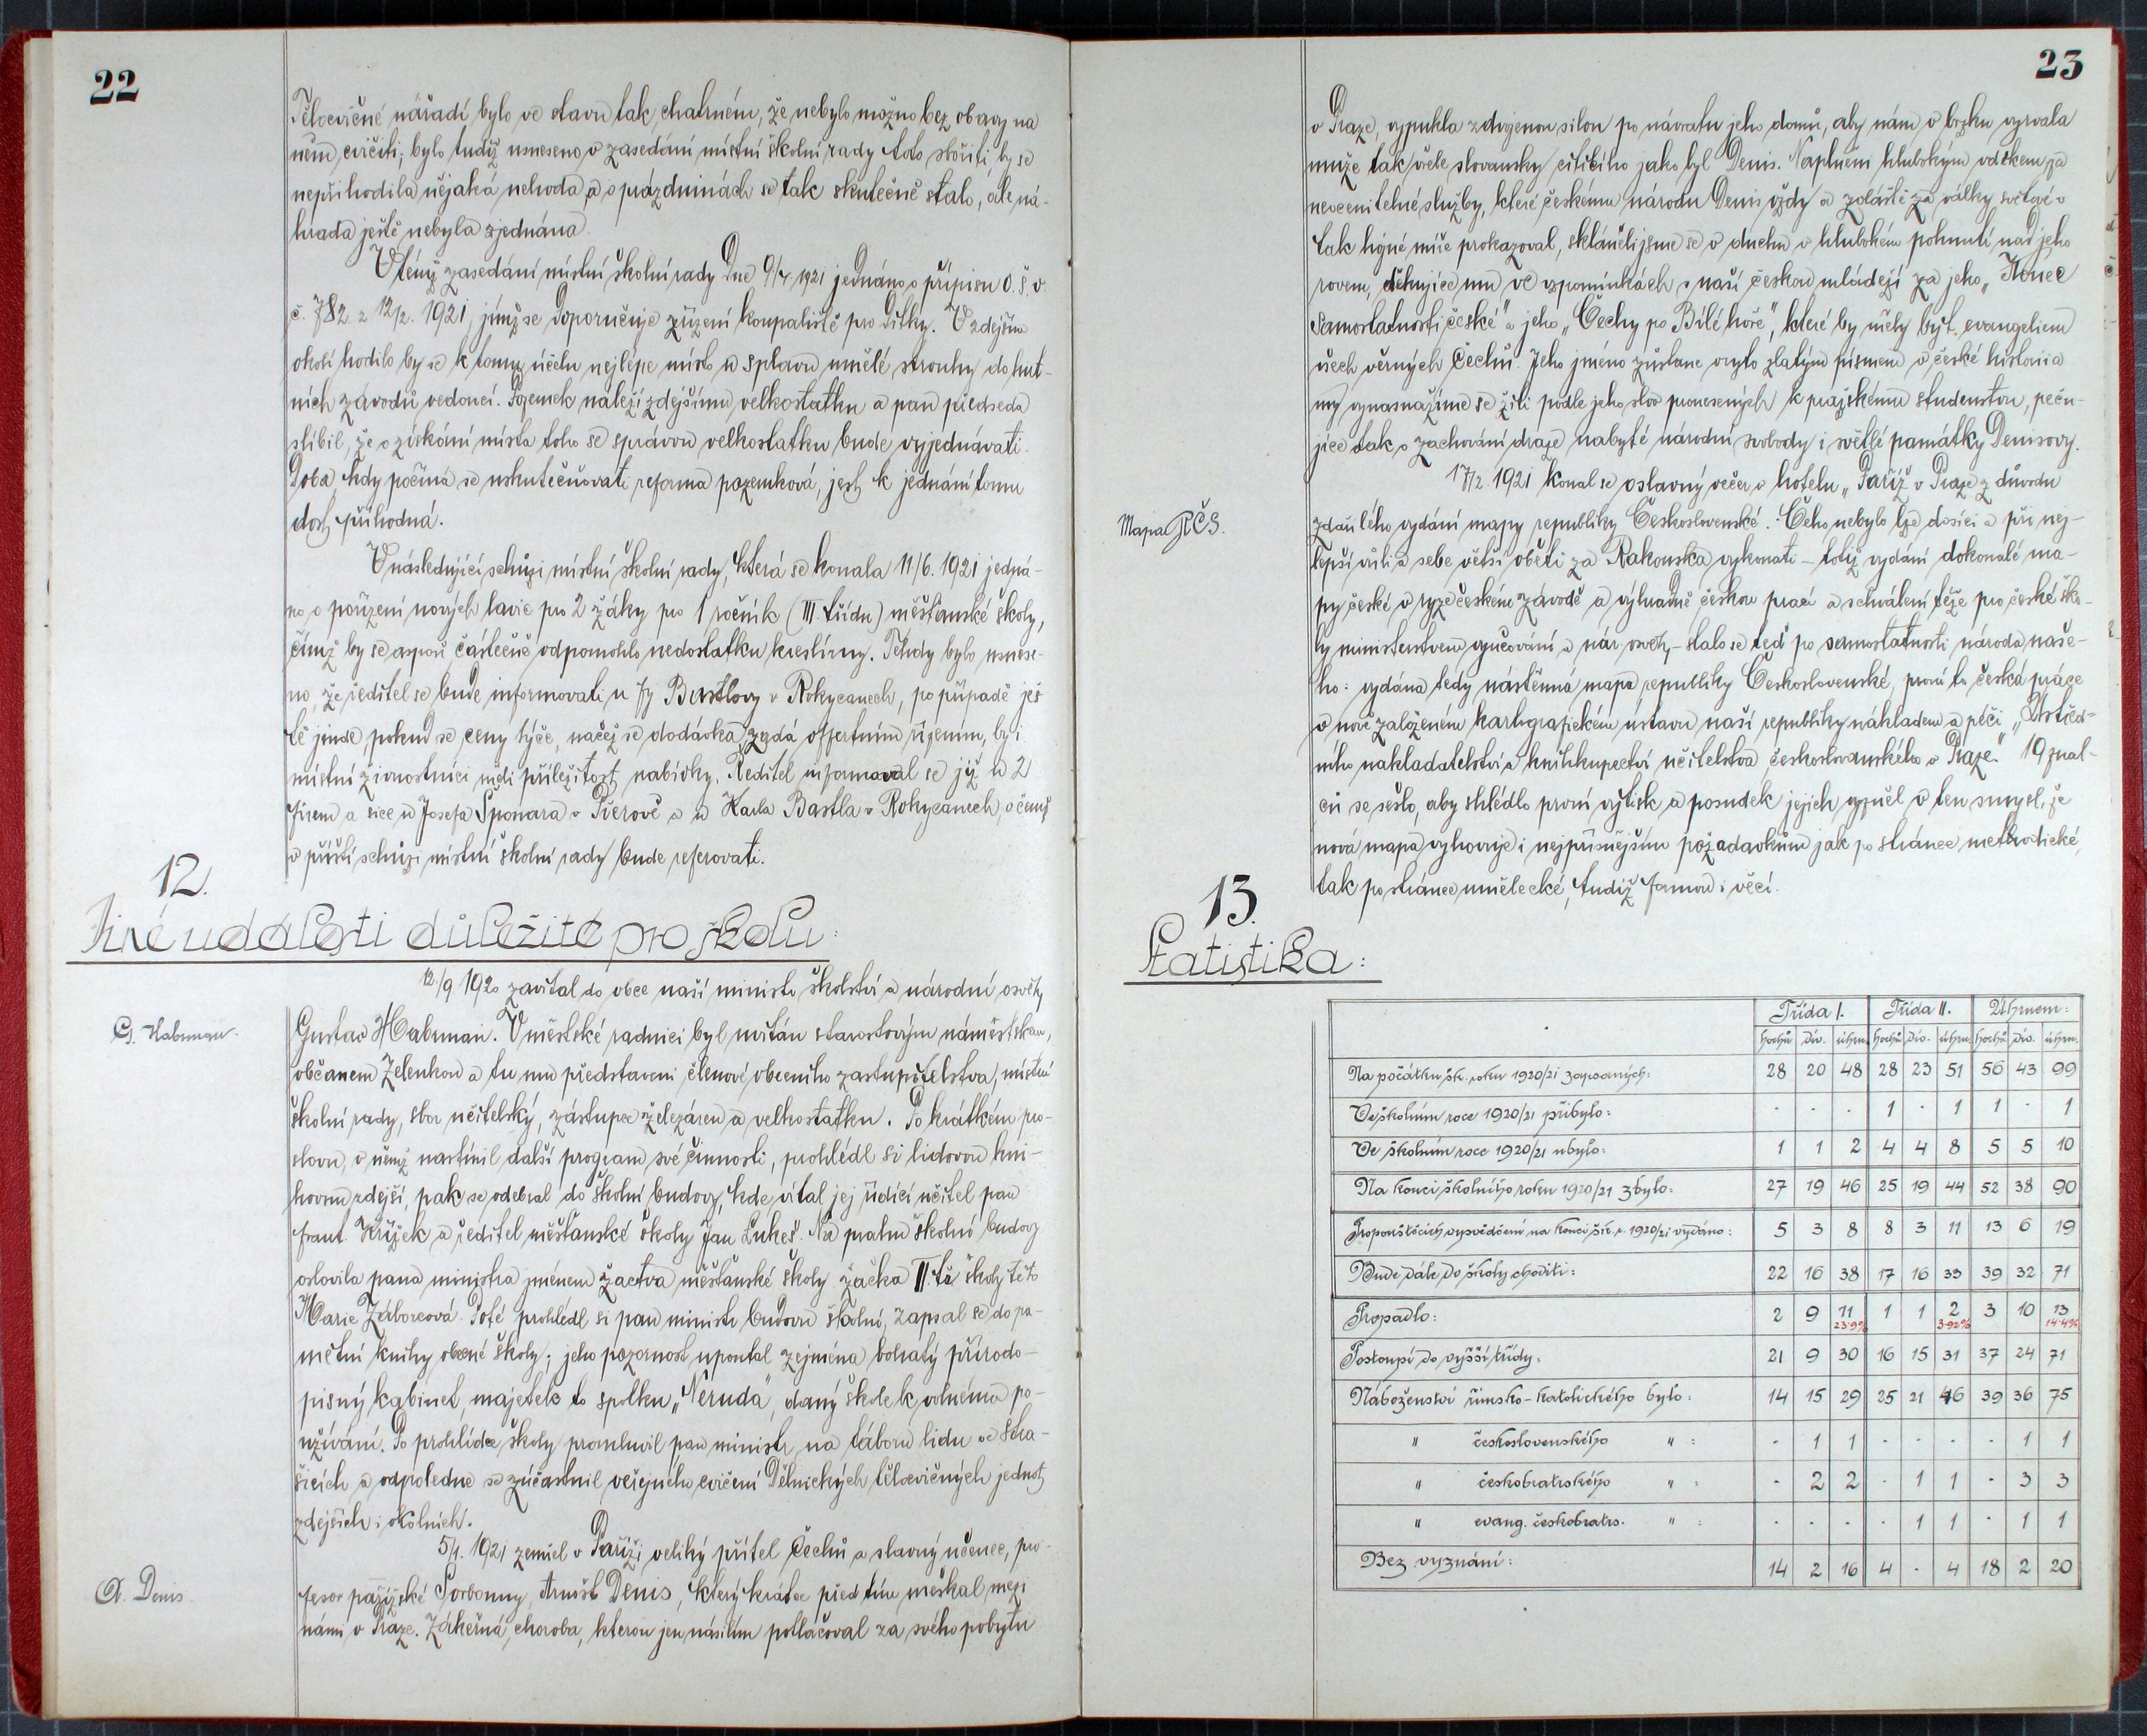 22
Tělocvičné nářadí bylo ve stavu tak chatrném, že nebylo možno bez obavy na
něm cvičiti; bylo tudíž usneseno v zasedání místní školní rady toto sbořiti, by se
nepřihodila nějaká nehoda, a o prázdninách se tak skutečně stalo, ale ná-
hrada ještě nebyla zjednána.
V témž zasedání místní školní rady dne 9/4 1921 jednáno o přípisu O. š. v.
č. 782 z 12/2. 1921, jímž se doporučuje zřízení koupaliště pro dítky. V zdejším
okolí hodilo by se k tomu účelu nejlépe místo u splavu umělé strouhy do hut-
ních závodů vedoucí. Pozemek náleží zdejšímu velkostatku a pan předseda
slíbil, že o získání místa toho se správou velkostatku bude vyjednávati.
Doba, kdy počíná se uskutečňovati reforma pozemková, jest k jednání tomu
dosti příhodná.
V následující schůzi místní školní rady, která se konala 11/6. 1921 jedná-
no o pořízení nových lavic pro 2 žáky pro 1 ročník (III. třídu) měšťanské školy,
čímž by se aspoň částečně odpomohlo nedostatku kreslírny. Tehdy bylo usnese-
no, že ředitel se bude informovati u fy Bastlovy v Rokycanech, po případě ješ
tě jinde, pokud se ceny týče, načež se dodávka zadá offertním řízením, by i
místní živnostníci měli příležitost nabídky. Ředitel informoval se již u 2
firem a sice u Josefa Sponara v Přerově a u Karla Bastla v Rokycanech, o čemž
v příští schůzi místní školní rady bude referovati.
12.
Jiné události důležité pro školu:
12./9 1920 zavítal do obce naší ministr školství a národní osvěty
G. Habrman.
Gustav Habrman. V městské radnici byl uvítán starostovým náměstkem,
občanem Zelenkou a tu mu představeni členové obecního zastupitelstva, místní
školní rady, sbor učitelský, zástupce železáren a velkostatku. Po krátkém pro-
slovu, v němž nastínil další program své činnosti, prohlédl si lidovou kni-
hovnu zdejší, pak se odebral do školní budovy, kde vítal jej řídící učitel pan
Frant. Křížek a ředitel měšťanské školy Jan Lukeš. Na prahu školní budovy
oslovila pana ministra jménem žactva měšťanské školy žačka II. tř. školy této
Marie Záborcová. Poté prohlédl si pan ministr budovu školní, zapsal se do pa-
mětní knihy obecné školy; jeho pozornost upoutal zejména bohatý přírodo-
pisný kabinet, majetek to spolku „Neruda“, daný škole k volnému po-
užívání. Po prohlídce školy promluvil pan ministr na táboru lidu ve Stra-
šicích a odpoledne se zúčastnil veřejného cvičení Dělnických tělocvičných jednot
zdejších i okolních.
5/1. 1921 zemřel v Paříži veliký přítel Čechů a slavný učenec, pro-
A. Denis.
fesor pařížské Sorbonny, Arnošt Denis, který krátce před tím meškal mezi
námi v Praze. Zákeřná choroba, kterou jen násilím potlačoval za svého pobytu
23
v Praze, vypukla zdvojenou silou po návratu jeho domů, aby nám v brzku vyrvala
muže tak vřele slovansky cítícího jako byl Denis. Naplněni hlubokým vděkem za
neocenitelné služby, které českému národu Denis vždy a zvláště za války světové v
tak hojné míře prokazoval, skláněli jsme se v duchu v hlubokém pohnutí nad jeho
rovem, děkujíce mu ve vzpomínkách s naší českou mládeží za jeho „Konec
samostatnosti české“ a jeho „Čechy po Bílé hoře“, které by měly být evangeliem
všech věrných Čechů. Jeho jméno zůstane vryto zlatým písmem v české historii a
my vynasnažíme se žíti podle jeho slov pronesených k pražskému studenstvu, peču-
jíce tak o zachování draze nabyté národní svobody i světlé památky Denisovy.
17/2 1921 konal se oslavný večer v hotelu „Paříž v Praze z důvodu
Mapa RČS.
zdařilého vydání mapy republiky Československé. Čeho nebylo lze dosíci a při nej-
lepší vůli a sebe větší oběti za Rakouska vykonati – totiž vydání dokonalé ma-
py české v ryze českém závodě a výhradně českou prací a schválení téže pro české ško-
ly ministerstvem vyučování a nár. osvěty – stalo se teď po samostatnosti národa naše-
ho: vydána tedy nástěnná mapa republiky Československé, první to česká práce
v nově založeném kartografickém ústavu naší republiky nákladem a péčí „Ústřed-
ního nakladatelství a knihkupectví učitelstva československého v Praze.“ 19 znal-
ců se sešlo, aby shlédlo první výtisk a posudek jejich vyzněl v ten smysl, že
nová mapa vyhovuje i nejpřísnějším požadavkům jak po stránce methodické,
tak po stránce umělecké, tudíž formou i věcí.
13.
Statistika:
Třída I. Třída II. Úhrnem:
hochů div. úhrn. hochů div. úhrn. hochů div. úhrn.
Na počátku šk. roku 1920/21 zapsaných: 28 20 48 28 23 51 56 43 99
Ve školním roce 1920/21 přibylo: . . . 1 . 1 1 . 1
Ve školním roce 1920/21 ubylo: 1 1 2 4 4 8 5 5 10
Na konci školního roku 1920/21 zbylo: 27 19 46 25 19 44 52 38 90
Propouštěcích vysvědčení na konci šk. r. 1920/21 vydáno: 5 3 8 8 3 11 13 6 19
Bude dále do školy choditi: 22 16 38 17 16 33 39 32 71
Propadlo: 2 9 11 1 1 2 3 10 13
23·9% 3·92% 14·4%
Postoupí do vyšší třídy: 21 9 30 16 15 31 37 24 71
Náboženství římsko-katolického bylo: 14 15 29 25 21 46 39 36 75
" československého " : - 1 1 - - - - 1 1
" českobratrského " : - 2 2 . 1 1 - 3 3
" evang. českobratrs. " : . . . . 1 1 - 1 1
Bez vyznání: 14 2 16 4 . 4 18 2 20